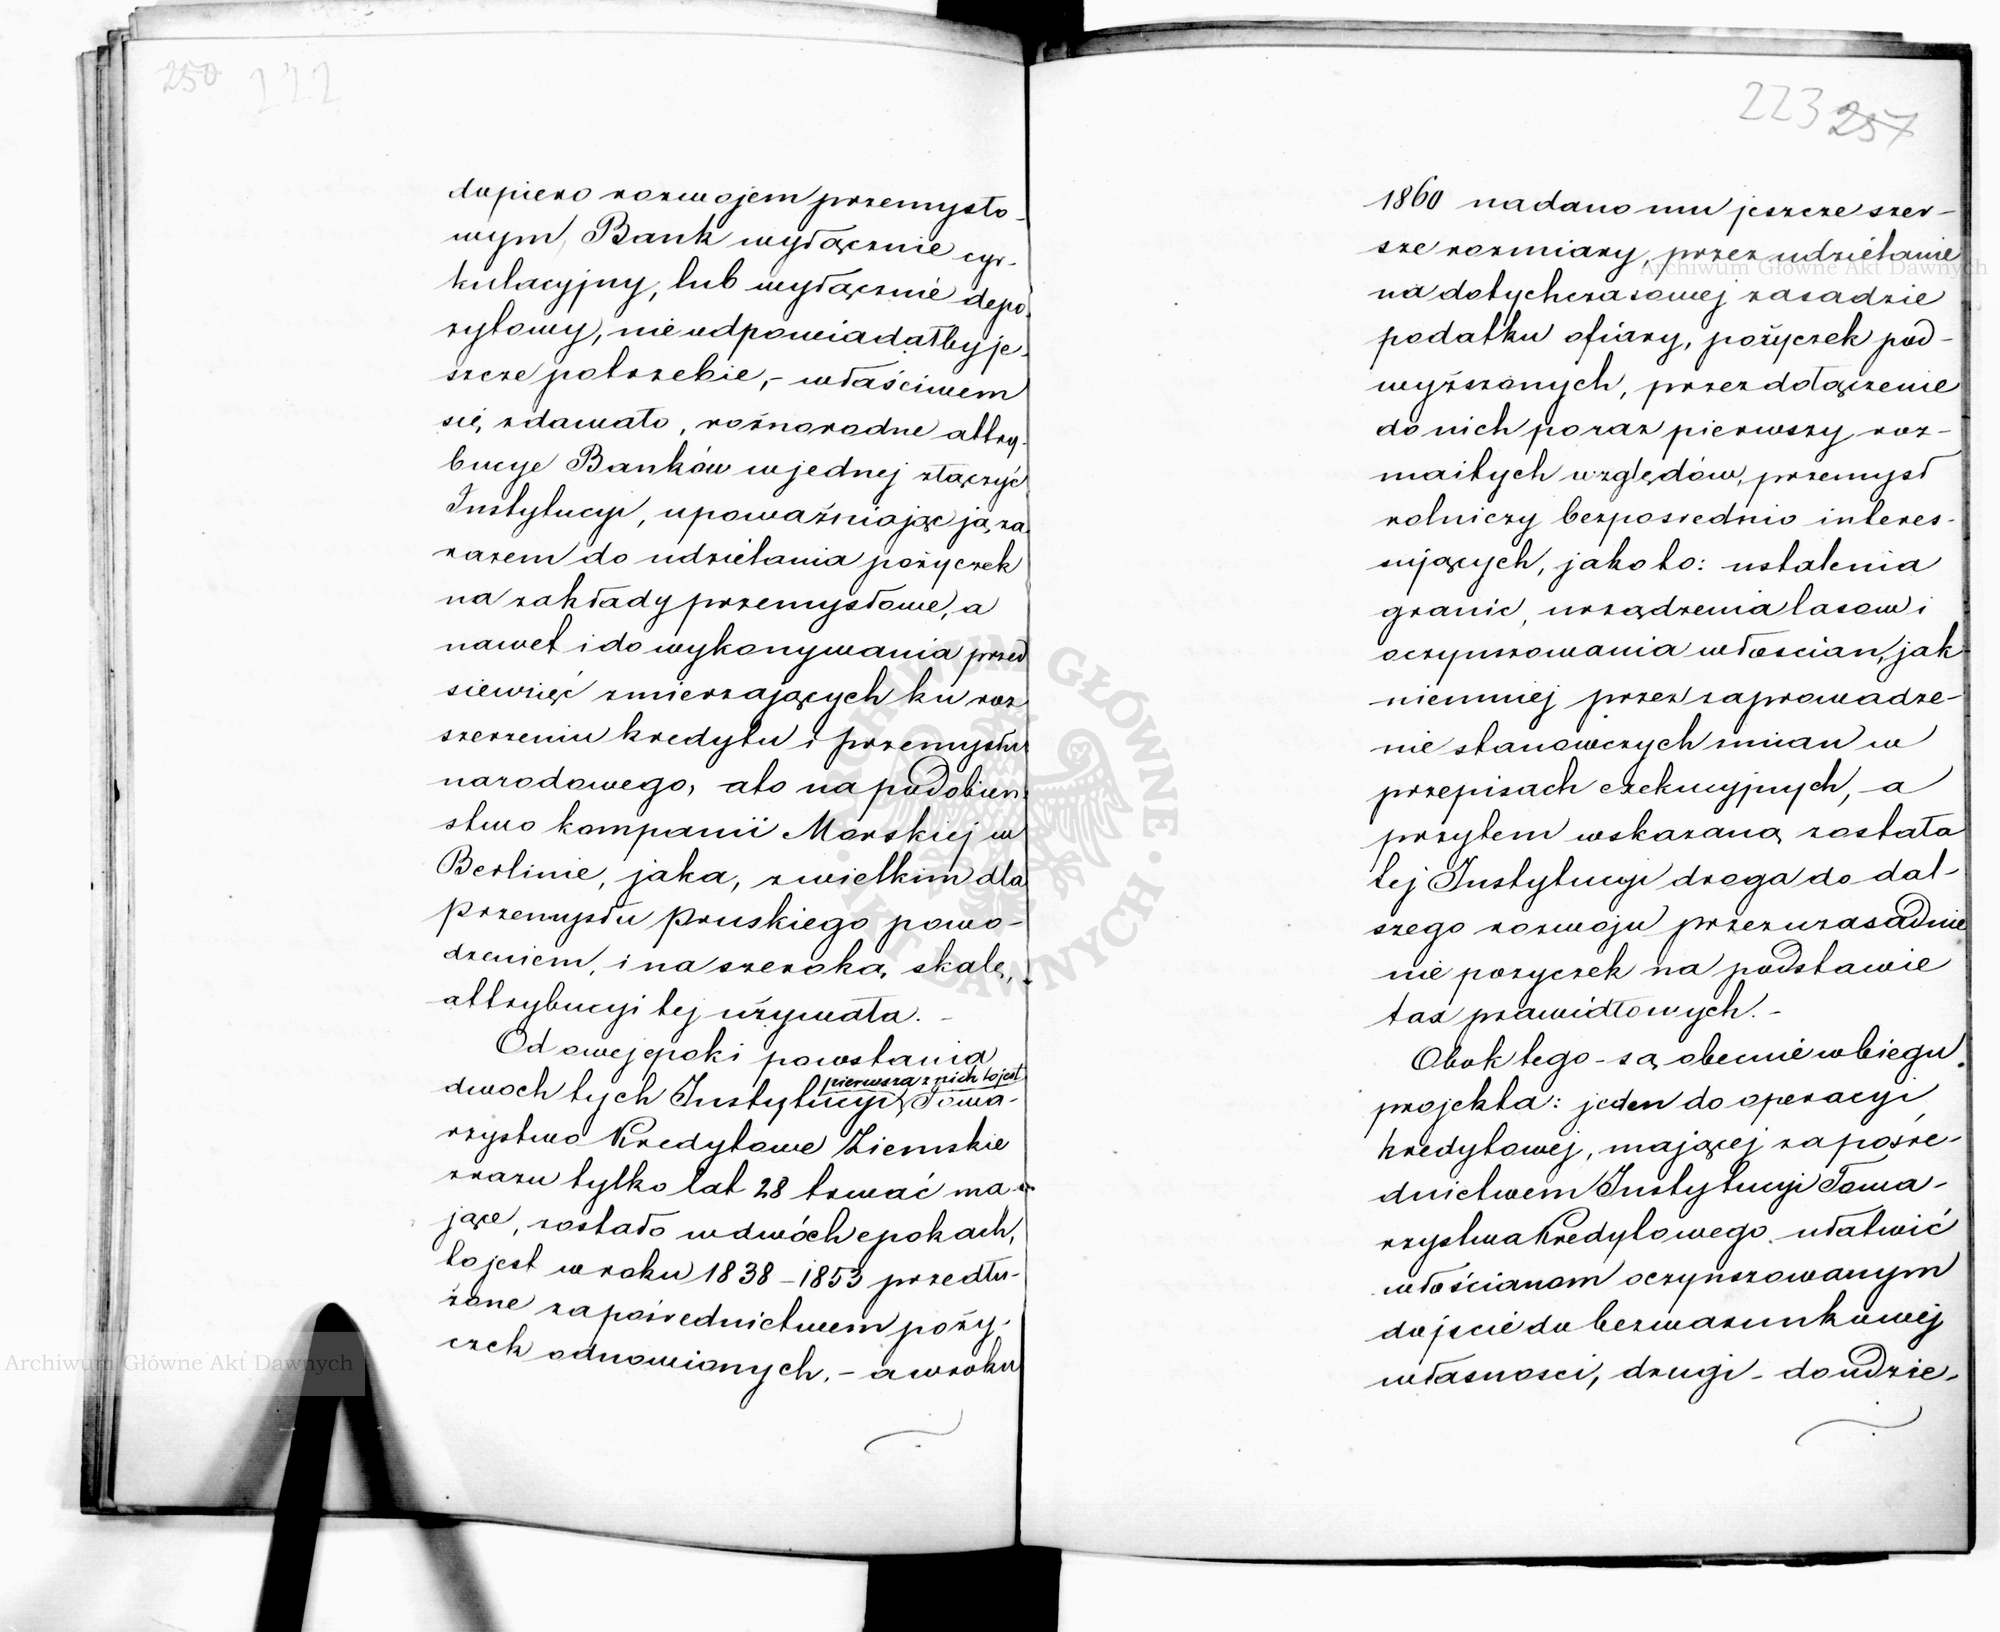 250 222
dopiero rozwojem przemysło-
wym, Bank wyłącznie cyr-
kulacyjny, lub wyłącznie depo-
zytowy, nie odpowiadałby je-
szcze potrzebie, – właściwem
się zdawało, rożnorodne attry-
bucye Banków w jednej złączyć
Instytucyi, upoważniając ją, za-
razem do udzielania pożyczek
na zakłady przemysłowe, a
nawet i do wykonywania przed
siewzięć zmierzających ku roz
szerzeniu kredytu i przemysłu
narodowego, – a to na podobień-
stwo kompanii Morskiej w
Berlinie, jaka, z wielkim dla
przemysłu pruskiego powo-
dzeniem, i na szeroką skalę,
attrybucyi tej używała. –
Od owej epoki powstania
pierwsza z nich to jest
dwoch tych Instytucyi, Towa-
rzystwo Kredytowe Ziemskie
zrazu tylko lat 28 trwać ma-
jące, zostało w dwóch epokach,
to jest w roku 1838 – 1853 przedłu-
żone za pośrednictwem poży-
czek odnowionych, – a w roku
223 257
1860 nadano mu jeszcze szer-
sze rozmiary, przez udzielanie
na dotychczasowej zasadzie
podatku ofiary, pożyczek pod-
wyższonych, przez dołączenie
do nich po raz pierwszy roz-
maitych względów, przemysł
rolniczy bezposrednio interes-
sujących, jako to: ustalenia
granic, urządzenia lasow i
oczynszowania włoscian, jak
niemniej przez zaprowadze-
nie stanowczych zmian w
przepisach exekucyjnych, – a
przytem wskazaną została
tej Instytucyi droga do dal-
szego rozwoju przez uzasadnie
nie pożyczek na podstawie
tax prawidłowych. –
Obok tego – są obecnie w biegu
projekta: jeden do operacyi
kredytowej, mającej za pośre-
dnictwem Instytucyi Towa-
rzystwa Kredytowego ułatwić
włościanom oczynszowanym
dojscie do bezwarunkowej
własnosci, drugi – do udzie-
Archiwum Główne Akt Dawnych
Archiwum Główne Akt Dawnych
ARCHIWUM GŁÓWNE · AKT DAWNYCH ·